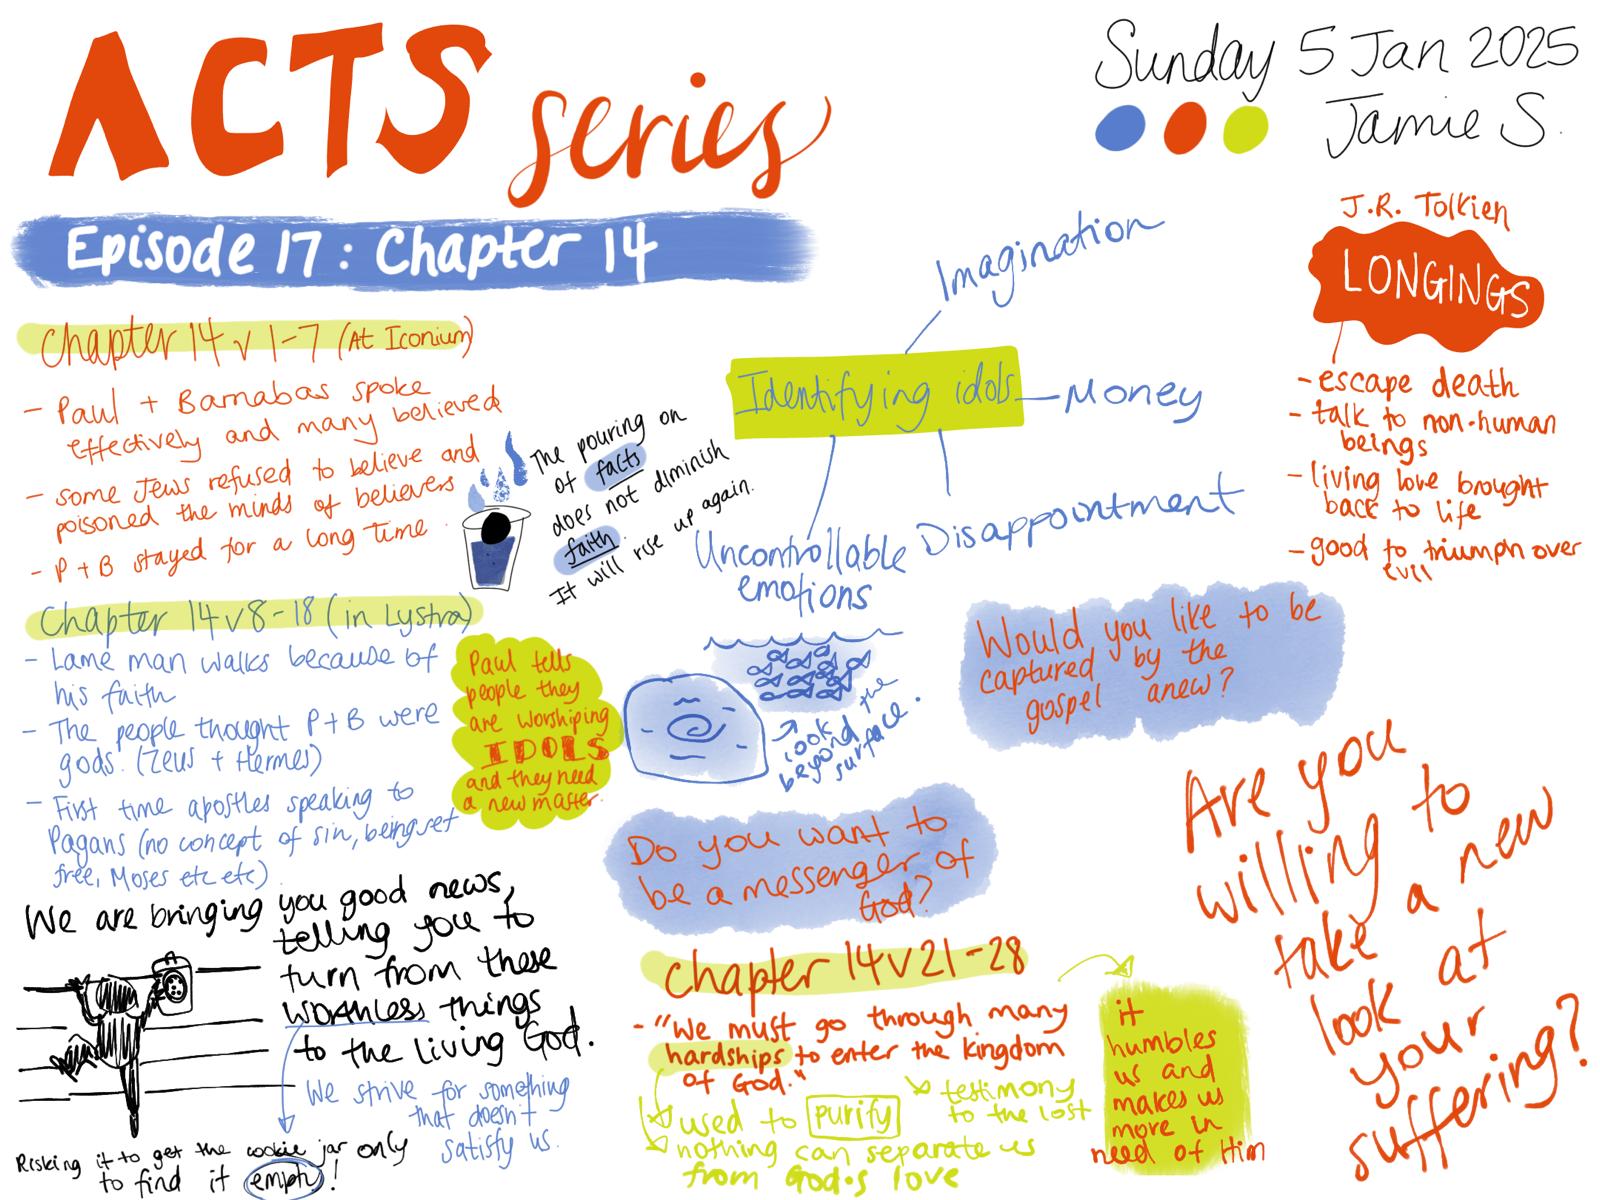 ACTS series
Sunday 5 Jan 2025
Jamie S.
Episode 17 : Chapter 14
Chapter 14 v 1-7 (At Iconium)
- Paul + Barnabas spoke
effectively and many believed
- some Jews refused to believe and
poisoned the minds of believers
- P + B stayed for a long time.
The pouring on
of facts
does not diminish
faith.
It will rise up again.
Chapter 14 v 8-18 (in Lystra)
- Lame man walks because of
his faith
- The people thought P + B were
gods. (Zeus + Hermes)
- First time apostles speaking to
Pagans (no concept of sin, being set
free, Moses etc etc)
Paul tells
people they
are worshiping
IDOLS
and they need
a new master.
We are bringing you good news,
telling you to
turn from these
worthless things
to the living God.
We strive for something
that doesn't
satisfy us.
Risking it to get the cookie jar only
to find it empty!
Identifying idols
Imagination
Money
Disappointment
Uncontrollable
emotions
look
beyond the
surface.
J.R. Tolkien
LONGINGS
- escape death
- talk to non-human
beings
- living love brought
back to life
- good to triumph over
evil
Would you like to be
captured by the
gospel anew?
Do you want to
be a messenger of
God?
Chapter 14 v 21-28
- "We must go through many
hardships to enter the kingdom
of God."
testimony
to the lost
used to purify
nothing can separate us
from God's love
it
humbles
us and
makes us
more in
need of Him
Are you
willing to
take a new
look at
your
suffering?